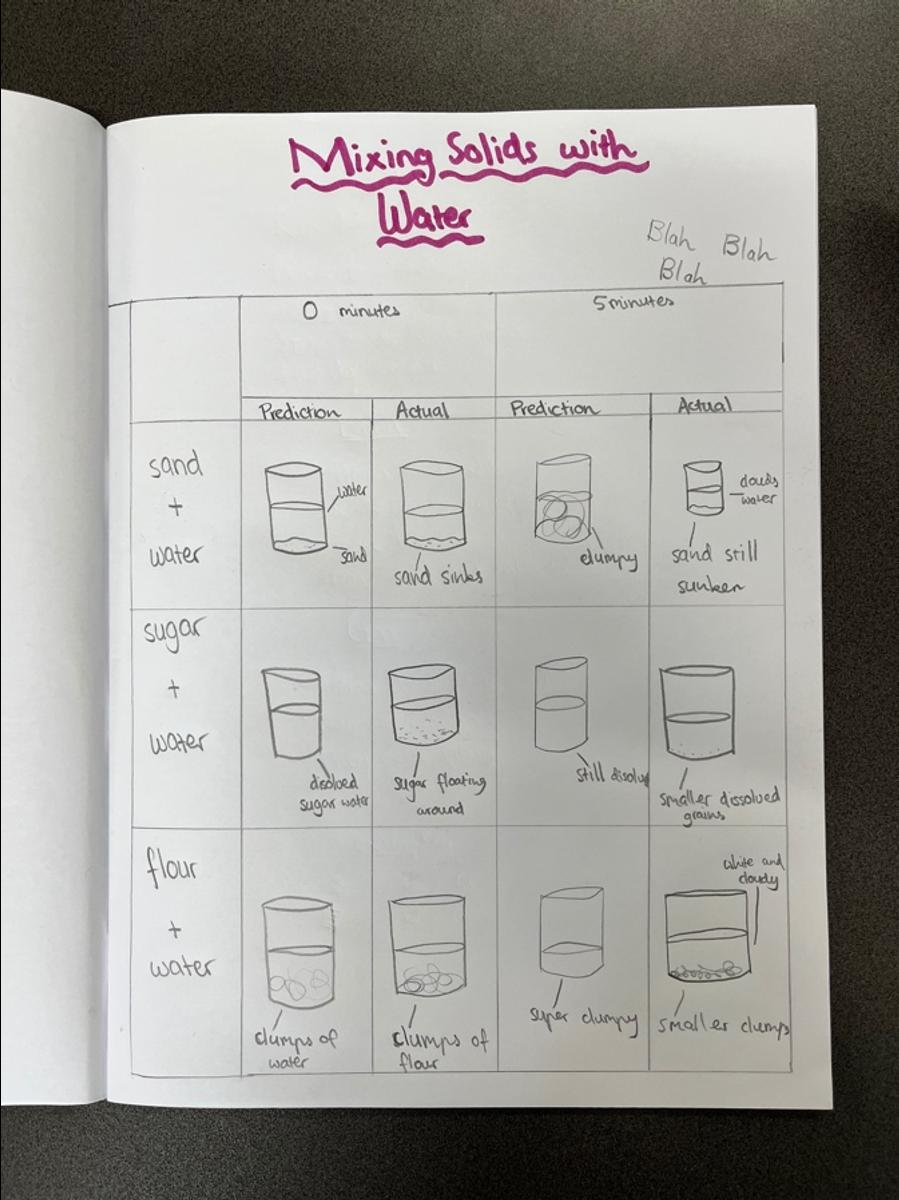 Mixing Solids with
Water
Blah Blah
Blah
0 minutes
5 minutes
Prediction
Actual
Prediction
Actual
sand
+
water
water
sand
sand sinks
clumpy
clouds
water
sand still
sunken
sugar
+
water
disolved
sugar water
sugar floating
around
still disolve
smaller dissolved
grains
flour
+
water
clumps of
water
clumps of
flour
super clumpy
white and
cloudy
smaller clumps